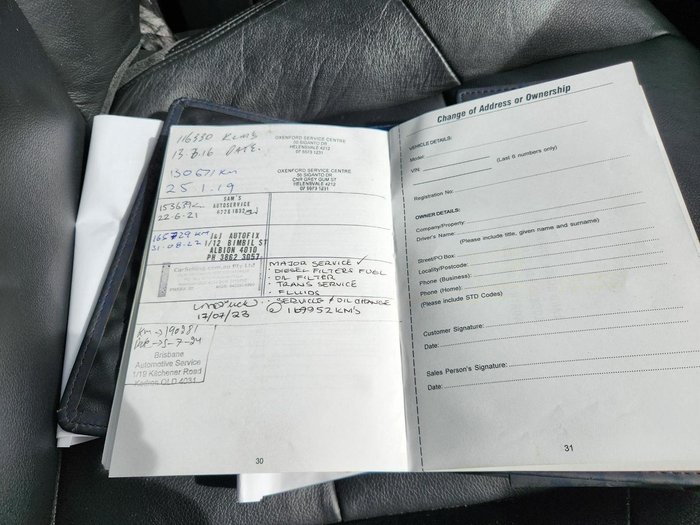 116330 KLMS
13.3.16 DATE.
OXENFORD SERVICE CENTRE
50 SIGANTO DR
HELENSVALE 4212
07 5573 1231
130671 KM
25.1.19
OXENFORD SERVICE CENTRE
50 SIGANTO DR
CNR GREY GUM ST
HELENSVALE 4212
07 5573 1231
153639KM
22-6-21
SAM'S
AUTOSERVICE
165729 KM
31-08-22
J&J AUTOFIX
1/12 BIMBIL ST
ALBION 4010
PH 3862 3057
MAJOR SERVICE ✓
- DIESEL FILTERS FUEL
- OIL FILTER
- TRANS SERVICE
- FLUIDS
17/07/23
SERVICE / OIL CHANGE
@ 169952KM'S
KM -> 190281
5-7-24
Brisbane
Automotive Service
1/19 Kitchener Road
Kedron QLD 4031
30
Change of Address or Ownership
VEHICLE DETAILS:
Model:
VIN:
(Last 6 numbers only)
Registration No:
OWNER DETAILS:
Company/Property:
Driver's Name:
(Please include title, given name and surname)
Street/PO Box:
Locality/Postcode:
Phone (Business):
Phone (Home):
(Please include STD Codes)
Customer Signature:
Date:
Sales Person's Signature:
Date:
31